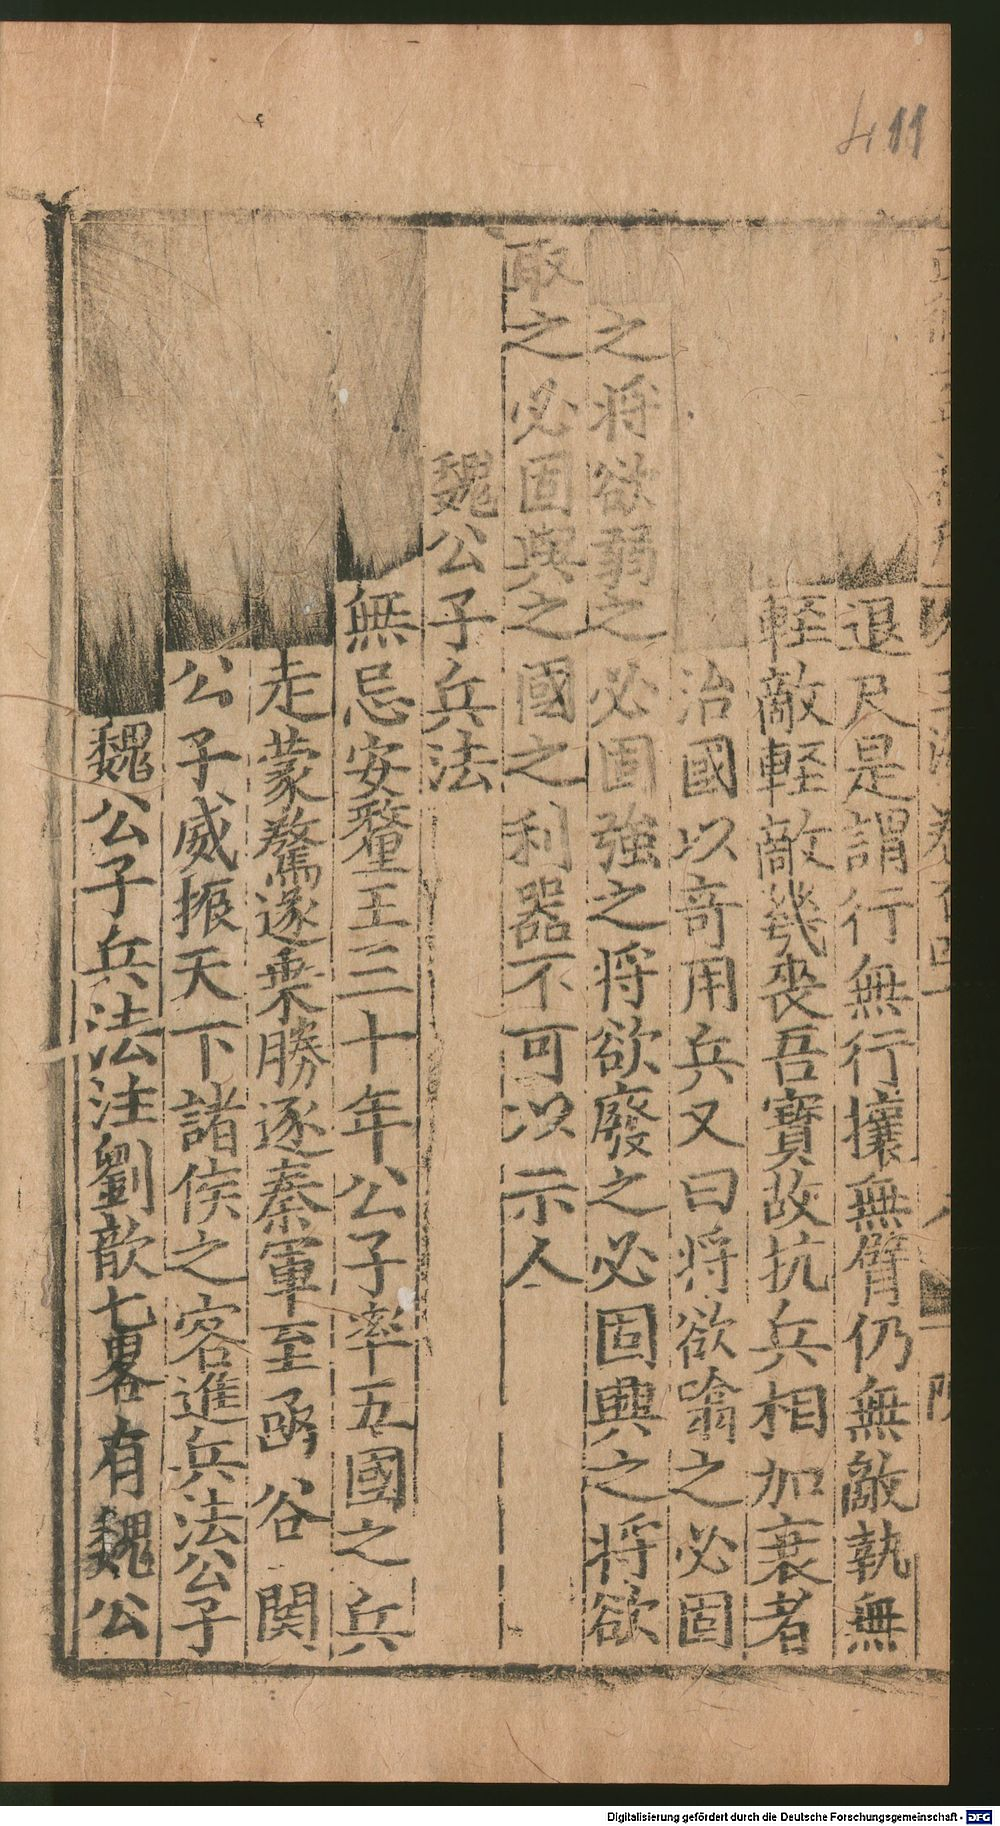 411
退尺是謂行無行攘無臂仍無敵執無
輕敵輕敵幾喪吾寶故抗兵相加哀者
治國以竒用兵又曰将欲噏之必固
之将欲弱之必固強之将欲廢之必固興之将欲
取之必固與之國之利器不可以示人
魏公子兵法
無忌安釐王三十年公子率五國之兵
走蒙驁遂乗勝逐秦軍至函谷関
公子威振天下諸侯之客進兵法公子
魏公子兵法注劉歆七畧有魏公
Digitalisierung gefördert durch die Deutsche Forschungsgemeinschaft - DFG